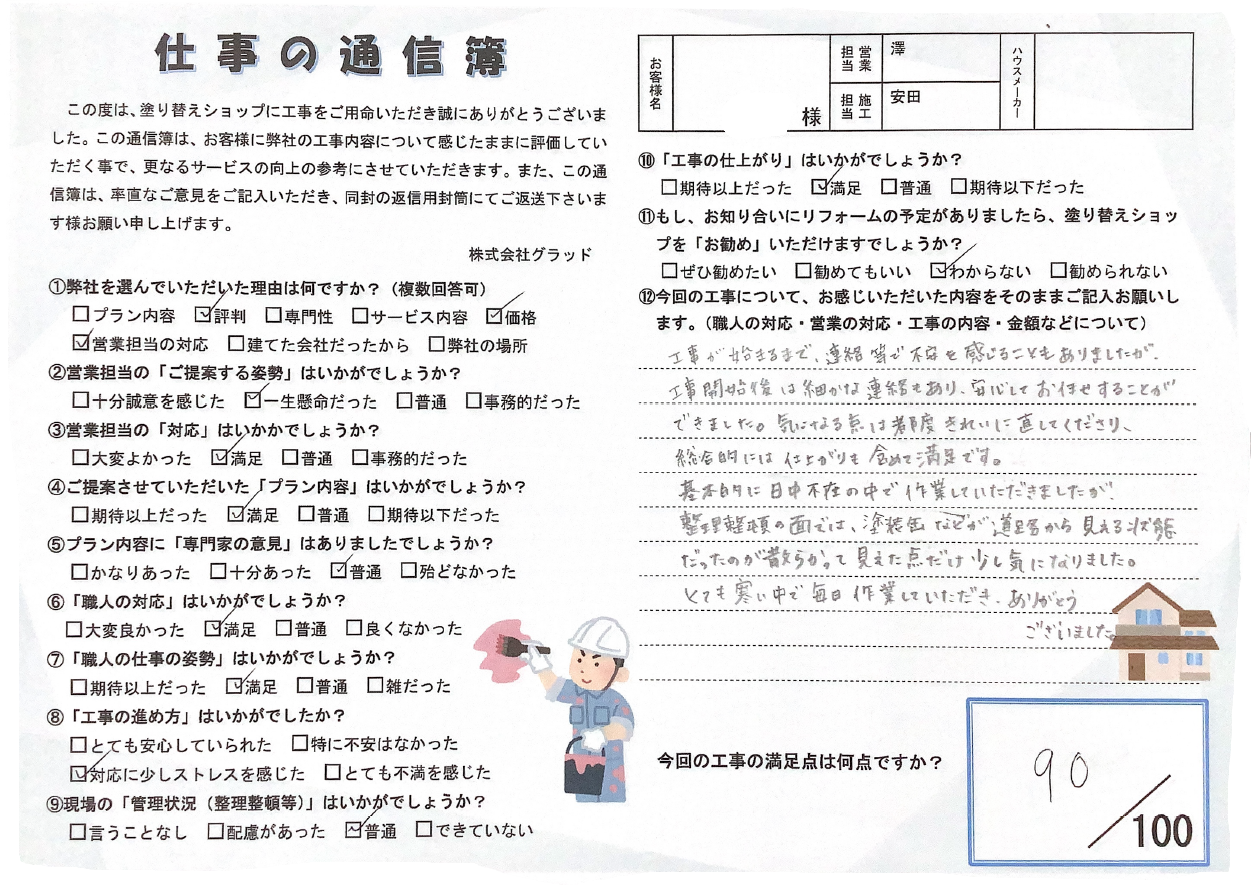 仕事の通信簿
この度は、塗り替えショップに工事をご用命いただき誠にありがとうございま
した。この通信簿は、お客様に弊社の工事内容について感じたままに評価してい
ただく事で、更なるサービスの向上の参考にさせていただきます。また、この通
信簿は、率直なご意見をご記入いただき、同封の返信用封筒にてご返送下さいま
す様お願い申し上げます。
株式会社グラッド
①弊社を選んでいただいた理由は何ですか？（複数回答可）
□プラン内容 ☑評判 □専門性 □サービス内容 ☑価格
☑営業担当の対応 □建てた会社だったから □弊社の場所
②営業担当の「ご提案する姿勢」はいかがでしょうか？
□十分誠意を感じた ☑一生懸命だった □普通 □事務的だった
③営業担当の「対応」はいかかでしょうか？
□大変よかった ☑満足 □普通 □事務的だった
④ご提案させていただいた「プラン内容」はいかがでしょうか？
□期待以上だった ☑満足 □普通 □期待以下だった
⑤プラン内容に「専門家の意見」はありましたでしょうか？
□かなりあった □十分あった ☑普通 □殆どなかった
⑥「職人の対応」はいかがでしょうか？
□大変良かった ☑満足 □普通 □良くなかった
⑦「職人の仕事の姿勢」はいかがでしょうか？
□期待以上だった ☑満足 □普通 □雑だった
⑧「工事の進め方」はいかがでしたか？
□とても安心していられた □特に不安はなかった
☑対応に少しストレスを感じた □とても不満を感じた
⑨現場の「管理状況（整理整頓等）」はいかがでしょうか？
□言うことなし □配慮があった ☑普通 □できていない
お客様名 様 営業担当 澤 ハウスメーカー
施工担当 安田
⑩「工事の仕上がり」はいかがでしょうか？
□期待以上だった ☑満足 □普通 □期待以下だった
⑪もし、お知り合いにリフォームの予定がありましたら、塗り替えショッ
プを「お勧め」いただけますでしょうか？
□ぜひ勧めたい □勧めてもいい ☑わからない □勧められない
⑫今回の工事について、お感じいただいた内容をそのままご記入お願いし
ます。（職人の対応・営業の対応・工事の内容・金額などについて）
工事が始まるまで、連絡等で不安を感じることもありましたが、
工事開始後は細かな連絡もあり、安心してお任せすることが
できました。気になる点は都度きれいに直してくださり、
総合的には仕上がりも含めて満足です。
基本的に日中不在の中で作業していただきましたが、
整理整頓の面では、塗装缶などが道路から見える状態
だったのが散らかって見えた点だけ少し気になりました。
とても寒い中で毎日作業していただき、ありがとう
ございました。
今回の工事の満足点は何点ですか？
90／100